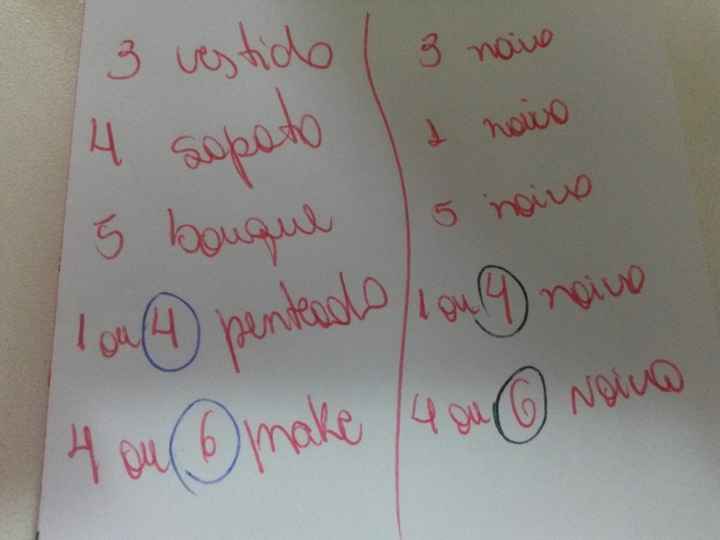 3 vestido
4 sapato
5 bouque
1 ou 4 penteado
4 ou 6 make
3 noivo
1 noivo
5 noivo
1 ou 4 noivo
4 ou 6 noivo